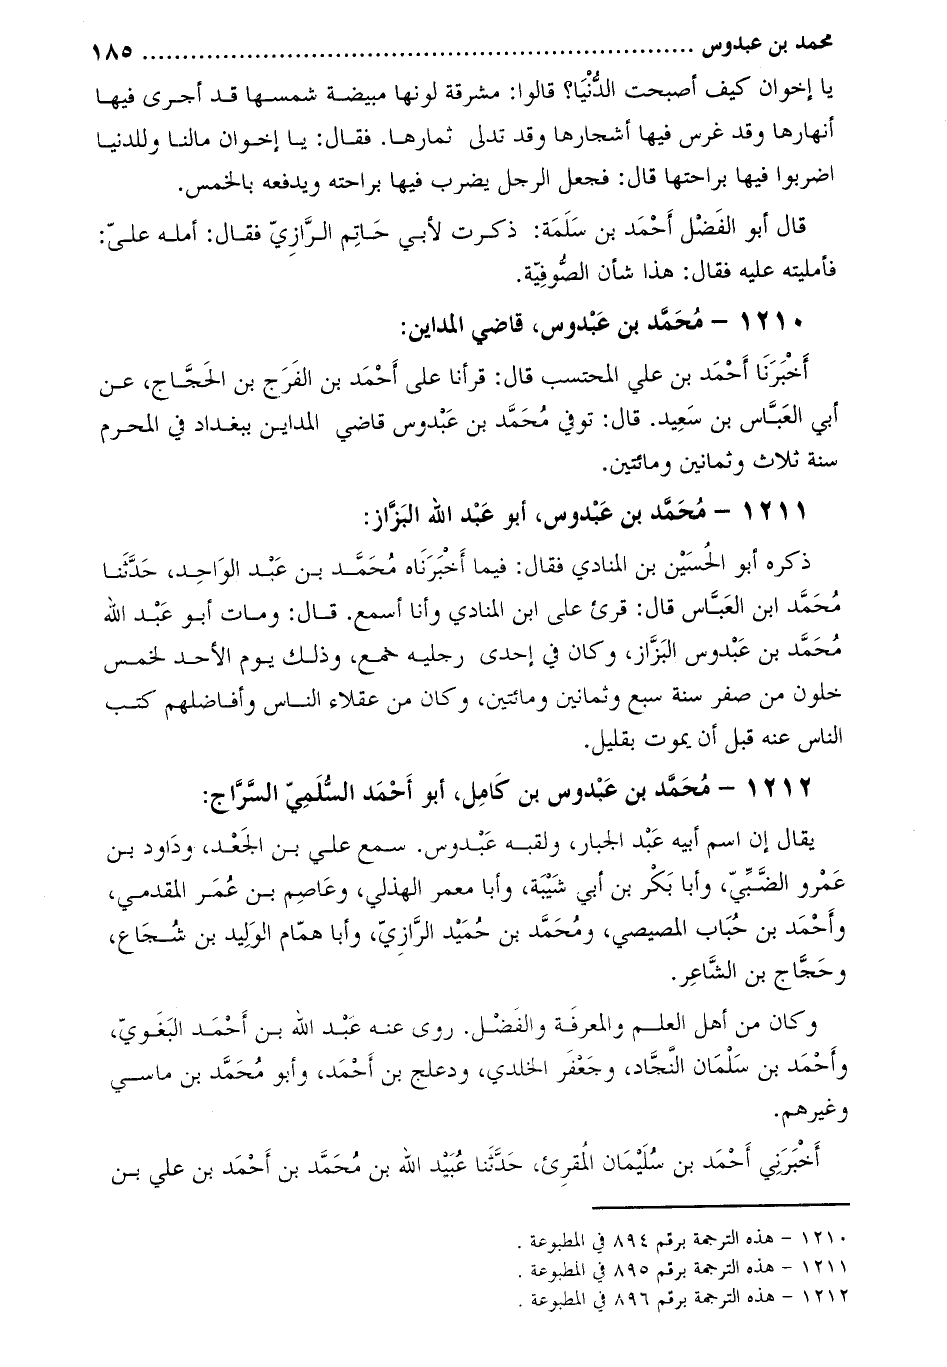 محمد بن عبدوس ..................................................................... ١٨٥
يا إخوان كيف أصبحت الدُّنْيَا؟ قالوا: مشرقة لونها مبيضة شمسها قد أجرى فيها
أنهارها وقد غرس فيها أشجارها وقد تدلى ثمارها. فقال: يا إخوان مالنا وللدنيا
اضربوا فيها براحتها قال: فجعل الرجل يضرب فيها براحته ويدفعه بالخمس.
قال أبو الفَضْل أَحْمَد بن سَلَمَة: ذكرت لأبي حَاتِم الرَّازِيّ فقال: أمله علىّ:
فأمليته عليه فقال: هذا شأن الصُّوفِيّة.
١٢١٠ – مُحَمَّد بن عَبْدوس، قاضي المداين:
أَخْبَرَنَا أَحْمَد بن علي المحتسب قال: قرأنا على أَحْمَد بن الفَرَج بن الحَجَّاج، عن
أبي العَبَّاس بن سَعِيد. قال: توفي مُحَمَّد بن عَبْدوس قاضي المداين ببغداد في المحرم
سنة ثلاث وثمانين ومائتين.
١٢١١ – مُحَمَّد بن عَبْدوس، أبو عَبْد الله البَزَّاز:
ذكره أبو الحُسَيْن بن المنادي فقال: فيما أَخْبَرَنَاه مُحَمَّد بن عَبْد الوَاحِد، حَدَّثَنا
مُحَمَّد ابن العَبَّاس قال: قرئ على ابن المنادي وأنا أسمع. قال: ومات أبو عَبْد الله
مُحَمَّد بن عَبْدوس البَزَّاز، وكان في إحدى رجليه خمع، وذلك يوم الأحد لخمس
خلون من صفر سنة سبع وثمانين ومائتين، وكان من عقلاء الناس وأفاضلهم كتب
الناس عنه قبل أن يموت بقليل.
١٢١٢ – مُحَمَّد بن عَبْدوس بن كَامِل، أبو أَحْمَد السُّلَمِيّ السَّرَّاج:
يقال إن اسم أبيه عَبْد الجبار، ولقبه عَبْدوس. سمع علي بن الجَعْد، ودَاود بن
عَمْرو الضَّبِّيّ، وأبا بَكْر بن أبي شَيْبَة، وأبا معمر الهذلي، وعَاصِم بن عُمَر المقدمي،
وأَحْمَد بن حُبَاب المصيصي، ومُحَمَّد بن حُمَيْد الرَّازِيّ، وأبا همّام الوَلِيد بن شُجَاع،
وحَجَّاج بن الشَّاعِر.
وكان من أهل العلم والمعرفة والفَضْل. روى عنه عَبْد الله بن أَحْمَد البَغَوِيّ،
وأَحْمَد بن سَلْمَان النَّجَّاد، وجَعْفَر الخلدي، ودعلج بن أَحْمَد، وأبو مُحَمَّد بن ماسي
وغيرهم.
أَخْبَرَنِي أَحْمَد بن سُلَيْمَان المُقرِئ، حَدَّثَنا عُبَيْد الله بن مُحَمَّد بن أَحْمَد بن علي بن
١٢١٠ – هذه الترجمة برقم ٨٩٤ في المطبوعة .
١٢١١ – هذه الترجمة برقم ٨٩٥ في المطبوعة .
١٢١٢ – هذه الترجمة برقم ٨٩٦ في المطبوعة .